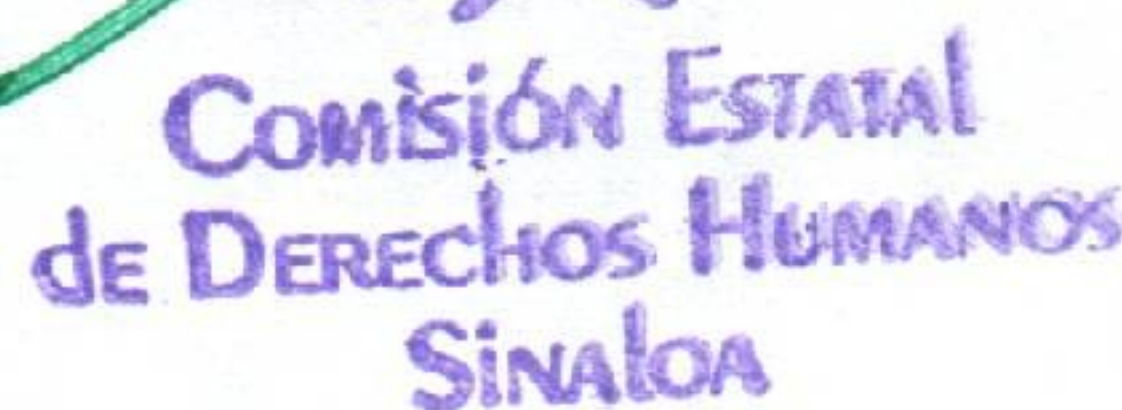 Comisión Estatal
de Derechos Humanos
Sinaloa